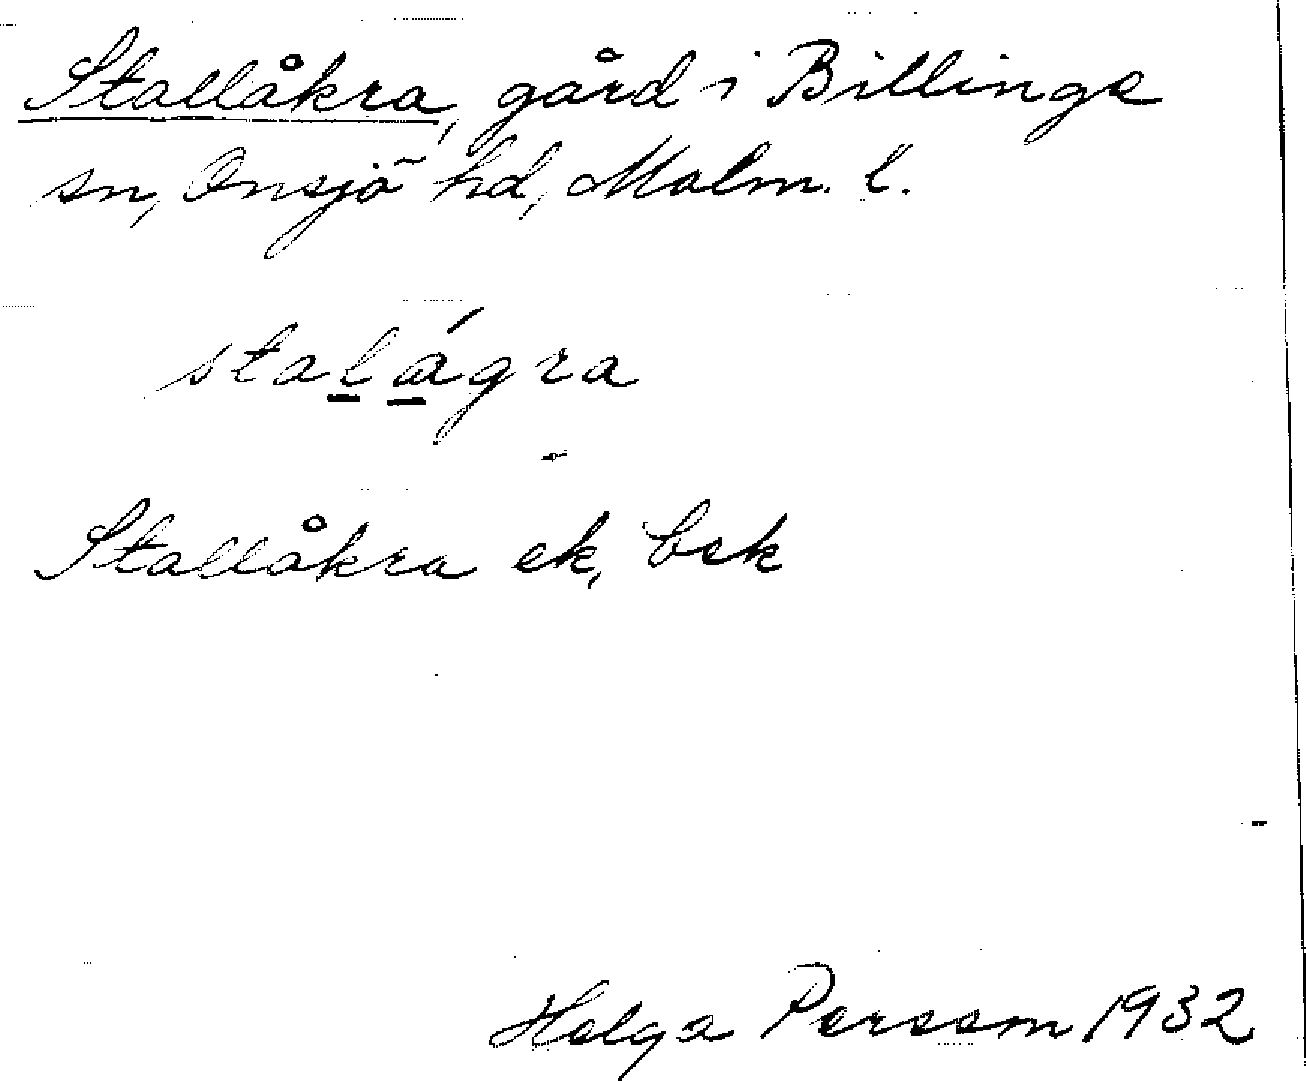 Stallåkra, gård i Billinge
sn, Onsjö hd, Malm. l.
stalágra
Stallåkra ek, bek
Helga Persson 1932